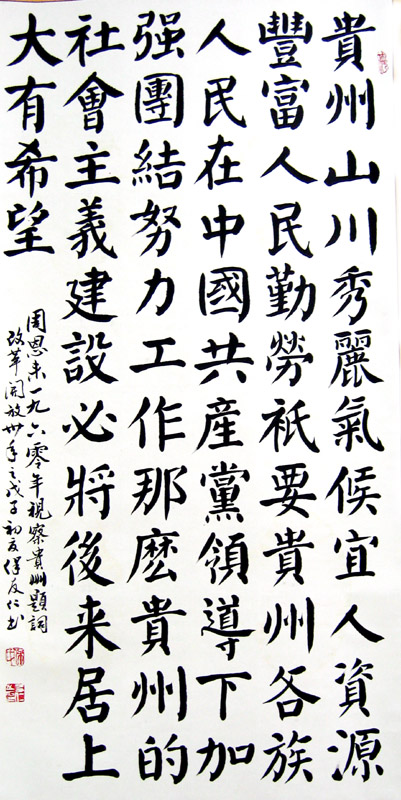 貴州山川秀麗氣候宜人資源
豐富人民勤勞祇要貴州各族
人民在中國共産黨領導下加
强團結努力工作那麽貴州的
社會主義建設必將後来居上
大有希望
周恩来一九六零年視察貴州題詞
改革開放卅年之戊子初夏 友仁书